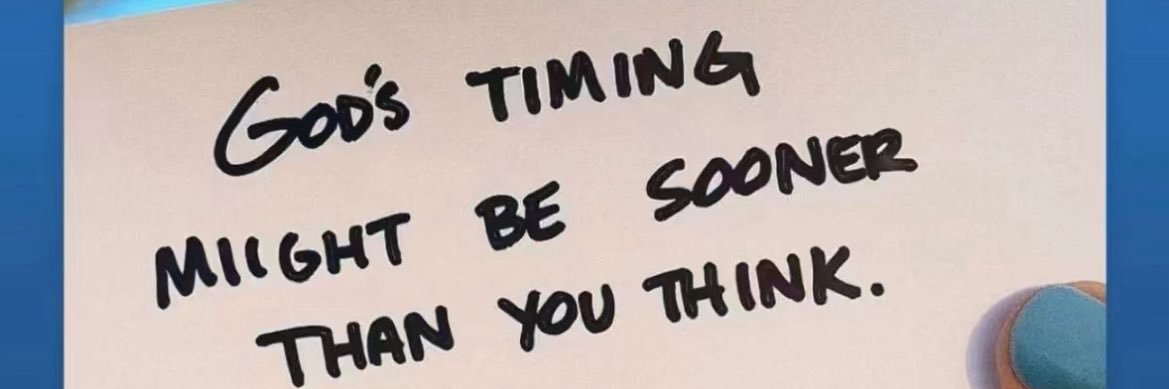 GOD'S TIMING
MIIGHT BE SOONER
THAN YOU THINK.